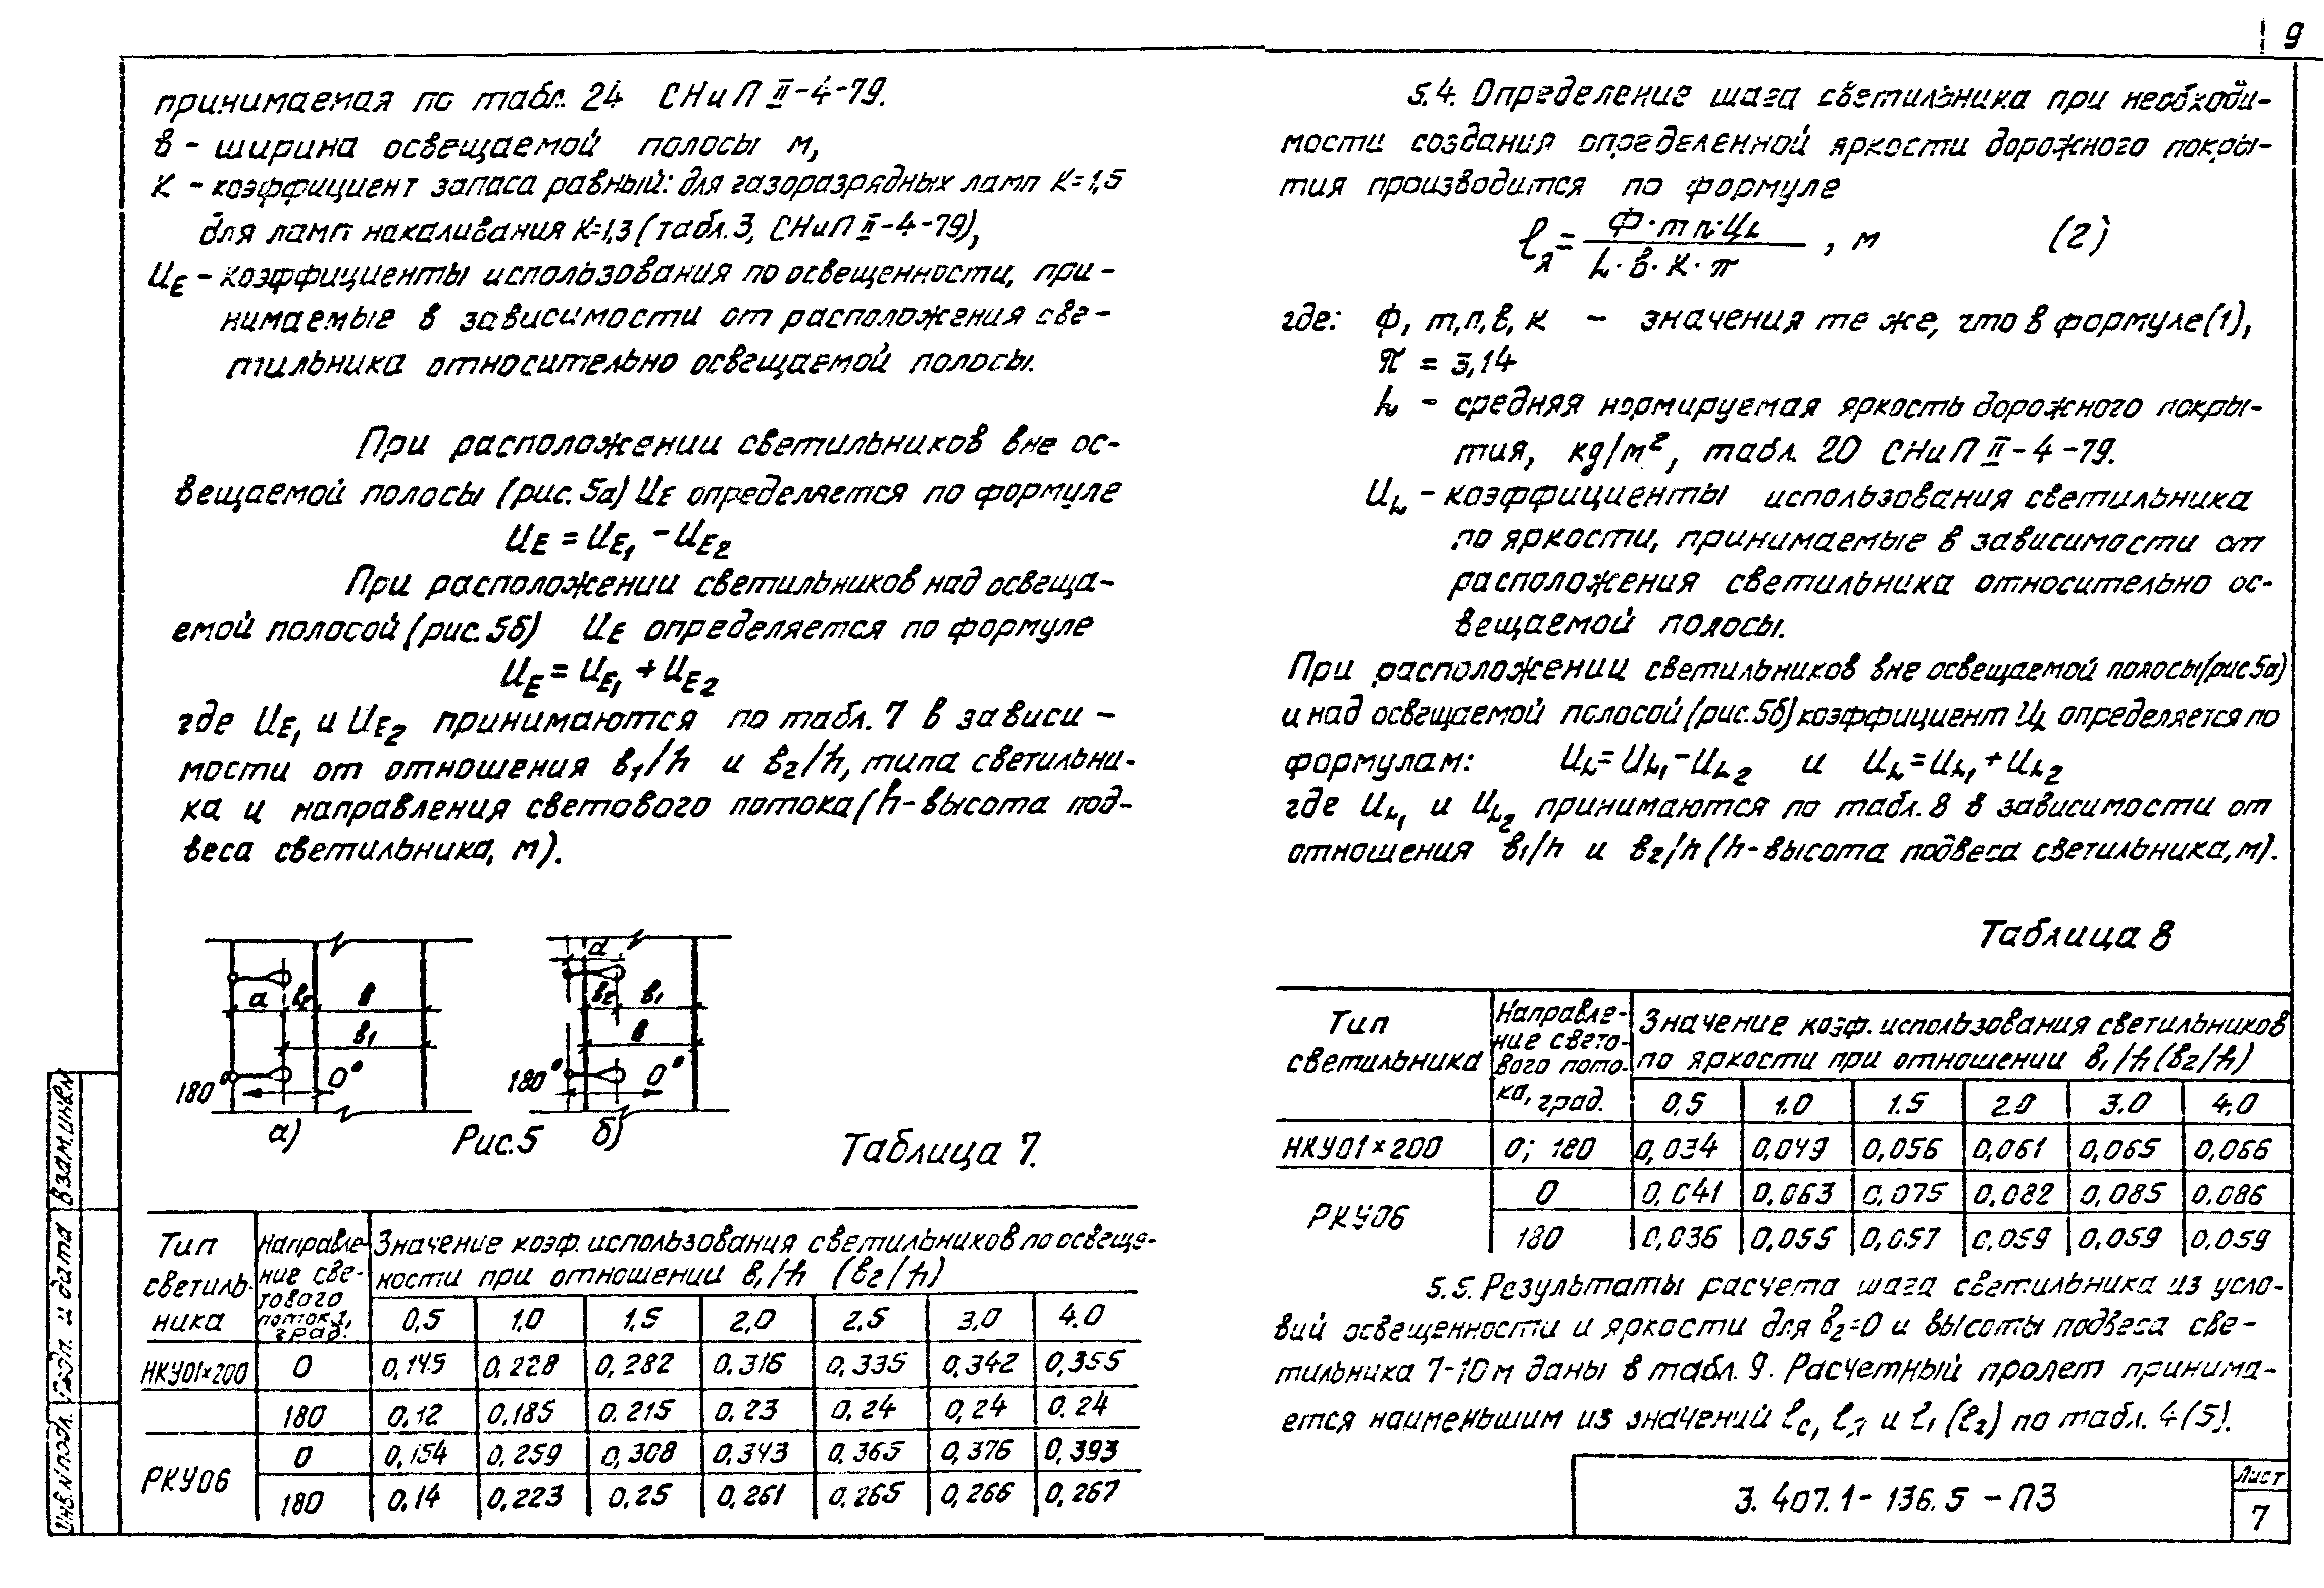 9
принимаемая по табл. 24 СНиП II-4-79.
в - ширина освещаемой полосы м,
К - коэффициент запаса равный: для газоразрядных ламп К=1,5
для ламп накаливания К=1,3 (табл. 3, СНиП II-4-79),
UE - коэффициенты использования по освещенности, при-
нимаемые в зависимости от расположения све-
тильника относительно освещаемой полосы.
При расположении светильников вне ос-
вещаемой полосы (рис. 5а) UE определяется по формуле
UE = UE1 - UE2
При расположении светильников над освеща-
емой полосой (рис. 5б) UE определяется по формуле
UE = UE1 + UE2
где UE1 и UE2 принимаются по табл. 7 в зависи-
мости от отношения в1/h и в2/h, типа светильни-
ка и направления светового потока (h-высота под-
веса светильника, м).
а в2 в
в1
180° 0°
а)
а
в2 в1
в
180° 0°
б)
Рис. 5
Таблица 7.
Тип светильника | Направление светового потока, град. | Значение коэф. использования светильников по освеще-
ности при отношении в1/h (в2/h)
0,5 1,0 1,5 2,0 2,5 3,0 4,0
НКУ01×200 0 0,145 0,228 0,282 0,316 0,335 0,342 0,355
180 0,12 0,185 0.215 0.23 0,24 0,24 0.24
РКУ06 0 0,154 0,259 0,308 0,343 0.365 0,376 0,393
180 0,14 0,223 0,25 0,261 0,265 0,266 0,267
5.4. Определение шага светильника при необходи-
мости создания определенной яркости дорожного покры-
тия производится по формуле
lя = Ф·m n·UL / L·в·К·π , м (2)
где: Ф, m, п, в, к - значения те же, что в формуле (1),
π = 3,14
L - средняя нормируемая яркость дорожного покры-
тия, кд/м², табл. 20 СНиП II-4-79.
UL - коэффициенты использования светильника
по яркости, принимаемые в зависимости от
расположения светильника относительно ос-
вещаемой полосы.
При расположении светильников вне освещаемой полосы (рис 5а)
и над освещаемой полосой (рис. 5б) коэффициент UL определяется по
формулам: UL = UL1 - UL2 и UL = UL1 + UL2
где UL1 и UL2 принимаются по табл. 8 в зависимости от
отношения в1/h и в2/h (h-высота подвеса светильника, м).
Таблица 8
Тип светильника | Направле-
ние свето-
вого пото-
ка, град. | Значение коэф. использования светильников
по яркости при отношении в1/h (в2/h)
0,5 1.0 1.5 2.0 3.0 4.0
НКУ01×200 0; 180 0,034 0,049 0,056 0,061 0,065 0,066
РКУ06 0 0,041 0,063 0,075 0.082 0,085 0.086
180 0,036 0,055 0,057 0,059 0,059 0.059
5.5. Результаты расчета шага светильника из усло-
вий освещенности и яркости для в2=0 и высоты подвеса све-
тильника 7-10м даны в табл. 9. Расчетный пролет принима-
ется наименьшим из значений lс, lя и l1 (l2) по табл. 4 (5).
3.407.1-136.5-ПЗ
Лист
7
Инв.№подл. Подп. и дата Взам.инв.№